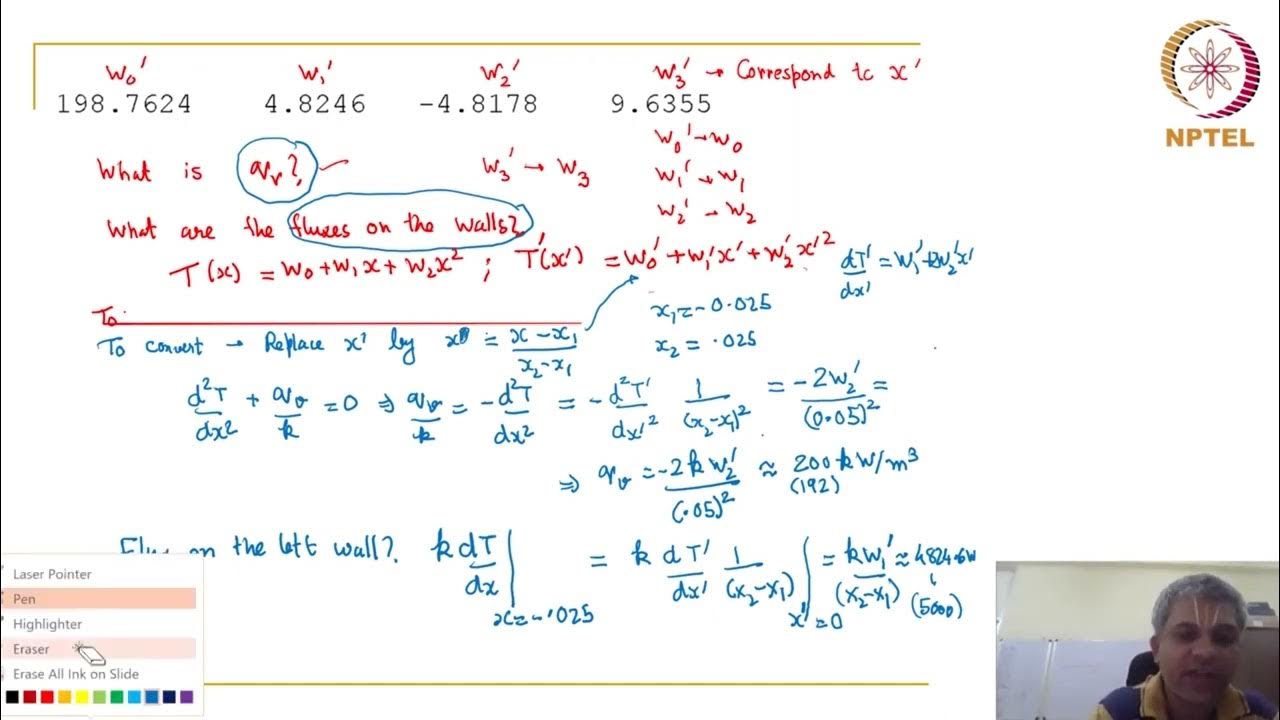 w₀′ w₁′ w₂′ w₃′ → Correspond to x′
198.7624 4.8246 -4.8178 9.6355
NPTEL
w₀′ → w₀
What is qᵥ? w₃′ → w₃ w₁′ → w₁
w₂′ → w₂
What are the fluxes on the walls?
T(x) = w₀+w₁x+w₂x² ; T′(x′) = w₀′+w₁′x′+w₂′x′² dT′/dx′ = w₁′+2w₂′x′
To
x₁=-0.025
To convert → Replace x′ by = (x-x₁)/(x₂-x₁) x₂ = .025
d²T/dx² + qᵥ/k =0 ⇒ qᵥ/k = -d²T/dx² = -d²T′/dx′² 1/(x₂-x₁)² = -2w₂′/(0.05)² =
⇒ qᵥ = -2kw₂′/(.05)² ≈ 200kW/m³
(192)
on the left wall? k dT/dx | x=-.025 = k dT′/dx′ 1/(x₂-x₁) | x′=0 = kw₁′/(x₂-x₁) ≈ 4824.6w
(5000)
Laser Pointer
Pen
Highlighter
Eraser
Erase All Ink on Slide